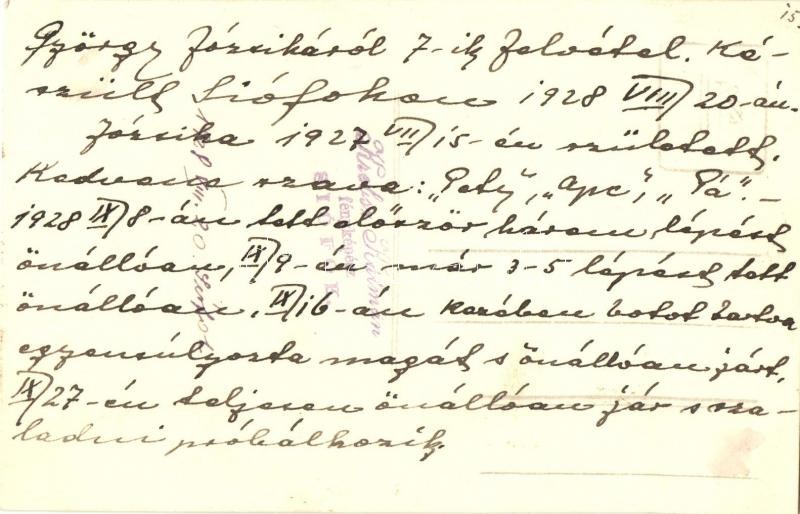 György Józsikáról 7-ik felvétel. Ké-
szült Siófokon 1928 VIII/20-án.
Józsika 1927 VII/15-én született.
Kedvenc szava: „Pety”, „Apc”, „Pá”. -
1928 IX/8-án tett először három lépést
önállóan, IX/9-én már 3-5 lépést tett
önállóan. IX/16-án kezében botot tartva
egyensúlyozta magát s önállóan járt.
IX/27-én teljesen önállóan jár s sza-
ladni próbálkozik.
Kálmán
fényképész
SIÓFOK
1928 VIII. 20. Siófok
15